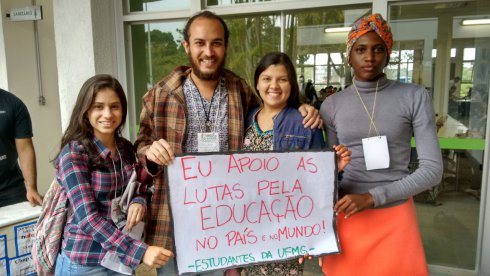 SANITÁRIO
EU APOIO AS
LUTAS PELA
EDUCAÇÃO
NO PAÍS E NO MUNDO!
-ESTUDANTES DA UFMG-